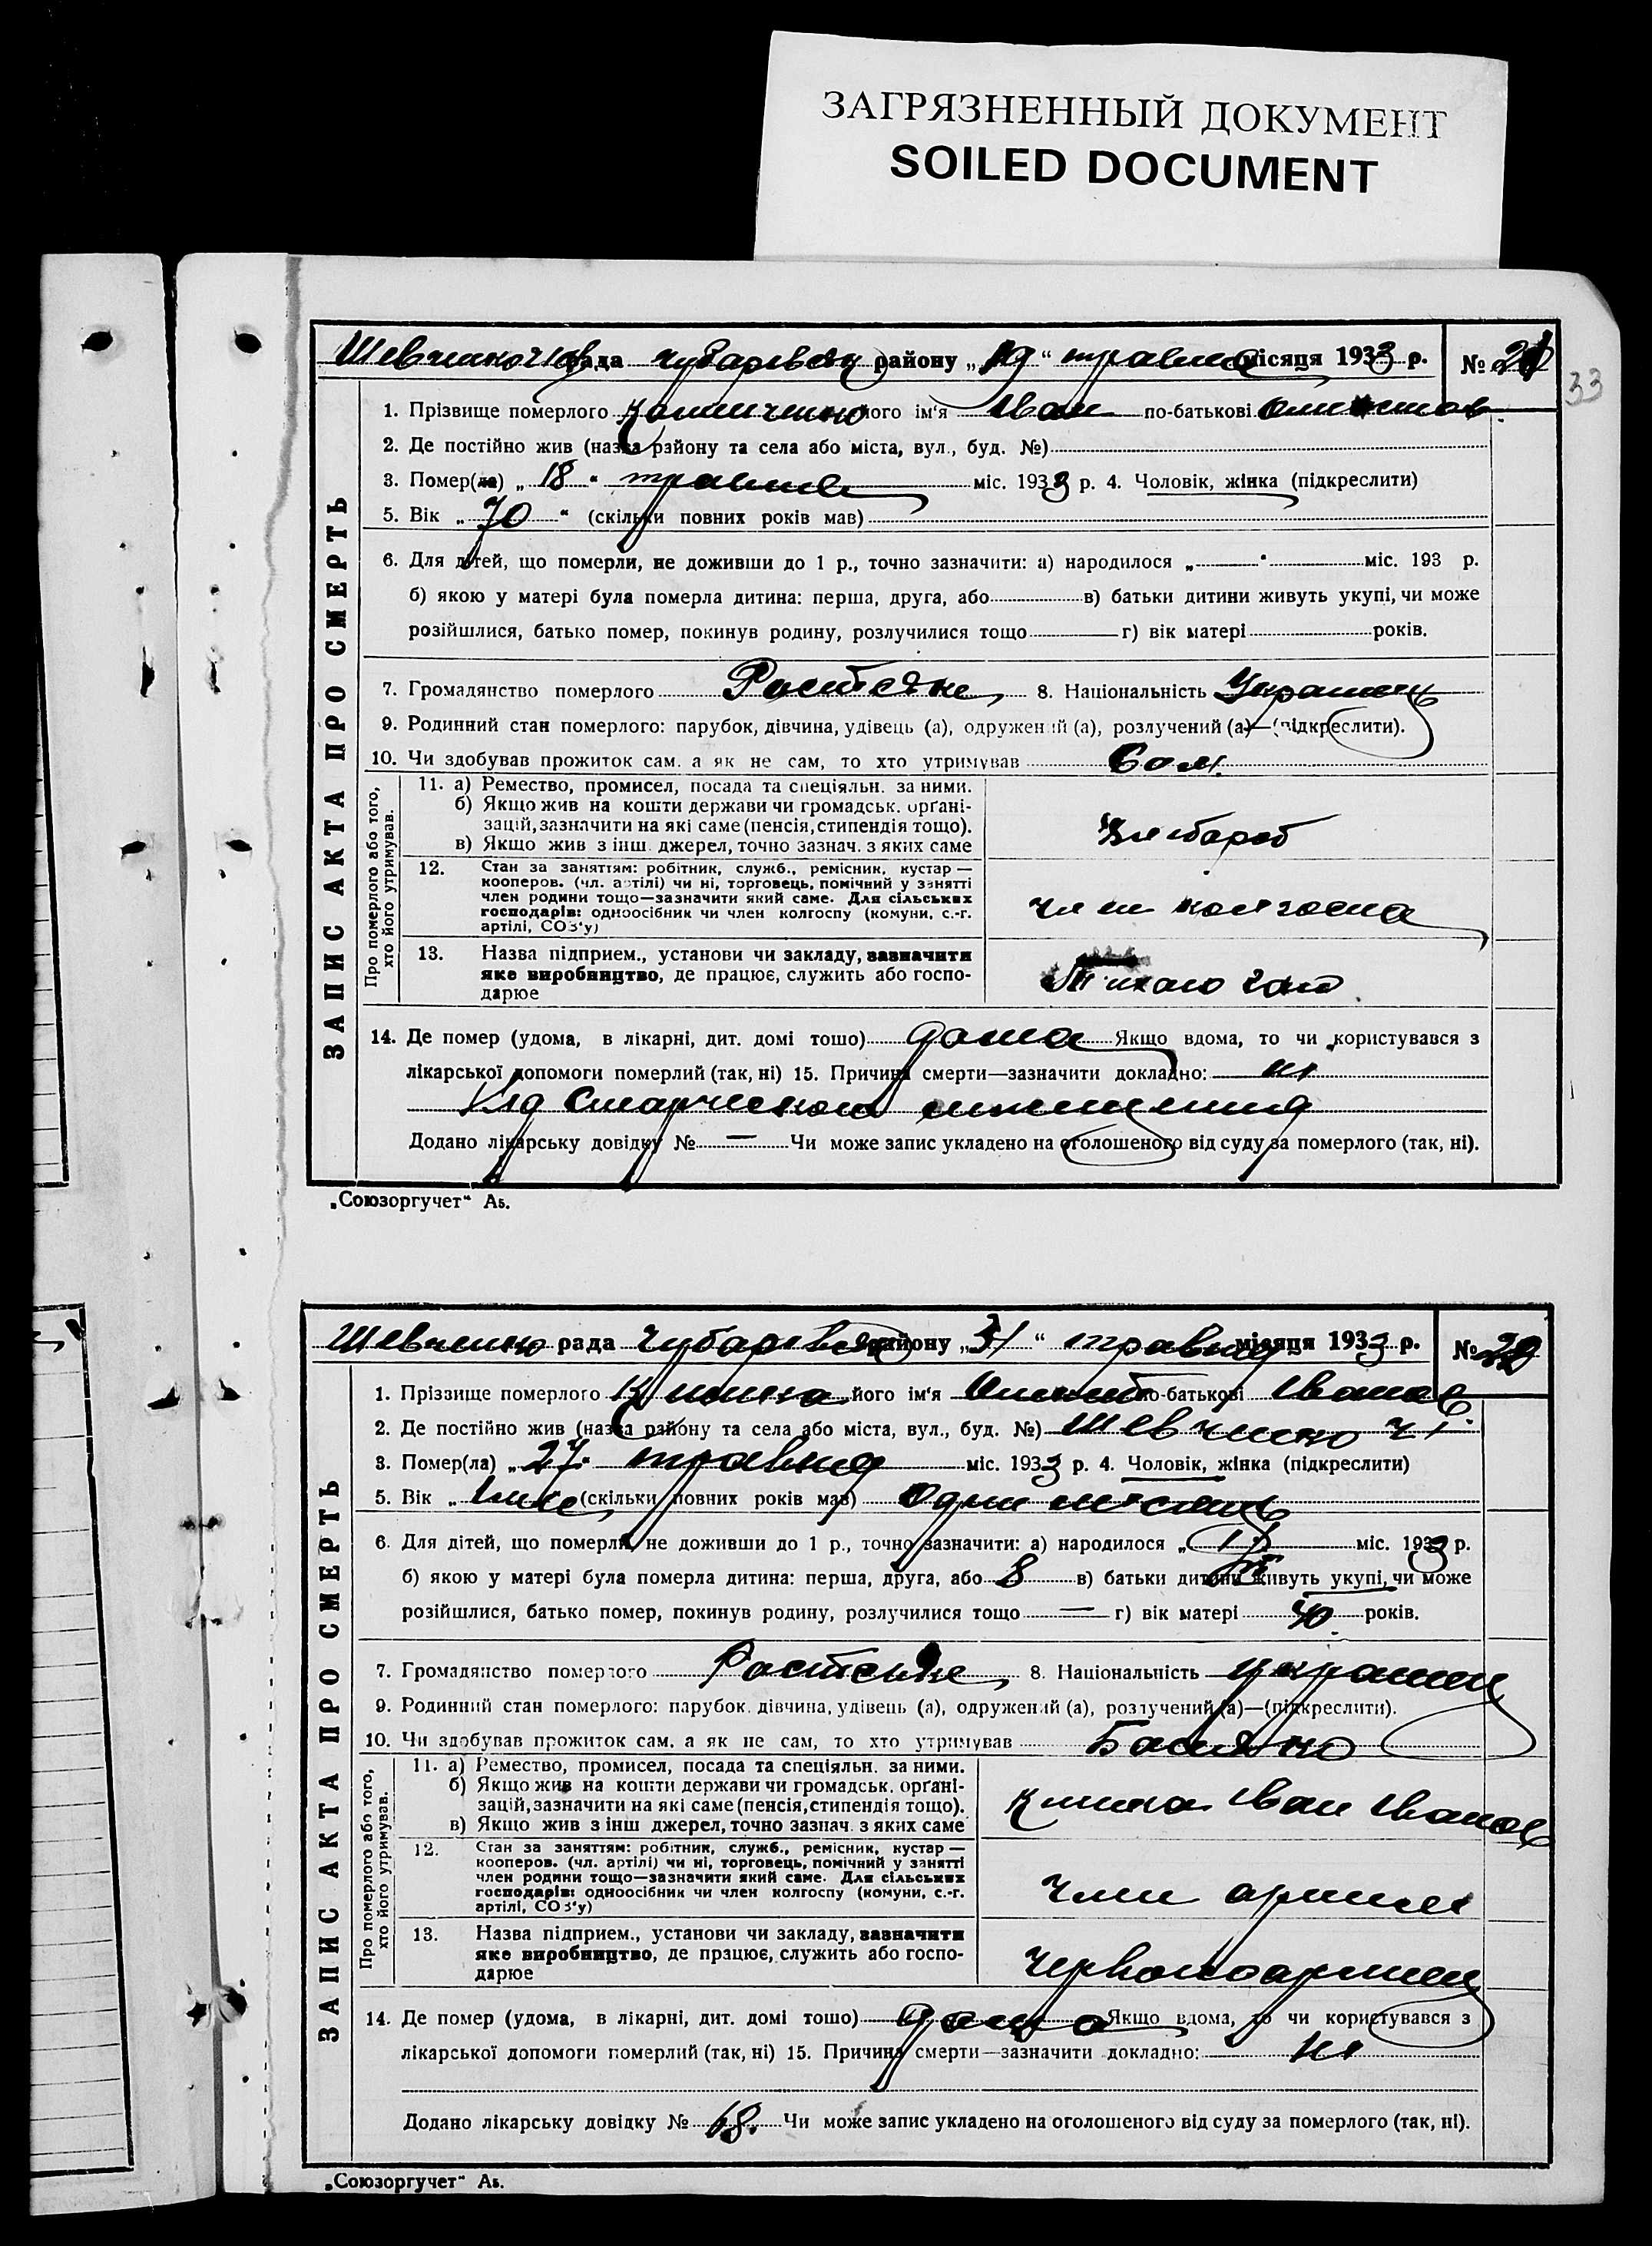 ЗАГРЯЗНЕННЫЙ ДОКУМЕНТ
SOILED DOCUMENT
33
рада Чубарівськ району „19“ травня місяця 1933 р. №
ЗАПИС АКТА ПРО СМЕРТЬ
1. Прізвище померлого його ім'я Іван по-батькові
2. Де постійно жив (назва району та села або міста, вул., буд. №)
3. Помер(ла) „18“ травня міс. 1933 р. 4. Чоловік, жінка (підкреслити)
5. Вік „70“ (скільки повних років мав)
6. Для дітей, що померли, не доживши до 1 р., точно зазначити: а) народилося „ “ міс. 193 р.
б) якою у матері була померла дитина: перша, друга, або в) батьки дитини живуть укупі, чи може
розійшлися, батько помер, покинув родину, розлучилися тощо г) вік матері років.
7. Громадянство померлого 8. Національність Украинец
9. Родинний стан померлого: парубок, дівчина, удівець (а), одружений (а), розлучений (а)—(підкреслити).
10. Чи здобував прожиток сам, а як не сам, то хто утримував Сам
Про померлого або того, хто його утримував.
11. а) Ремество, промисел, посада та спеціяльн. за ними.
б) Якщо жив на кошти держави чи громадськ. органі-
зацій, зазначити на які саме (пенсія, стипендія тощо).
в) Якщо жив з інш. джерел, точно зазнач. з яких саме
Хлібороб
12. Стан за заняттям: робітник, служб., ремісник, кустар —
кооперов. (чл. артілі) чи ні, торговець, помічний у занятті
член родини тощо—зазначити який саме. Для сільських
господарів: одноосібник чи член колгоспу (комуни, с.-г.
артілі, СОЗ'у)
член колгоспа
13. Назва підприєм., установи чи закладу, зазначити
яке виробництво, де працює, служить або госпо-
дарює
14. Де помер (удома, в лікарні, дит. домі тощо) дома Якщо вдома, то чи користувався з
лікарської допомоги померлий (так, ні) 15. Причина смерти—зазначити докладно: ні
Додано лікарську довідку № — Чи може запис укладено на оголошеного від суду за померлого (так, ні).
„Союзоргучет“ А5.
Шевченко рада Чубарівськ району „31“ травня місяця 1933 р. №
ЗАПИС АКТА ПРО СМЕРТЬ
1. Прізвище померлого його ім'я по-батькові Іванов
2. Де постійно жив (назва району та села або міста, вул., буд. №)
3. Помер(ла) „27“ травня міс. 1933 р. 4. Чоловік, жінка (підкреслити)
5. Вік „ (скільки повних років мав) Один місяць
6. Для дітей, що померли, не доживши до 1 р., точно зазначити: а) народилося „ міс. 1933 р.
б) якою у матері була померла дитина: перша, друга, або 8 в) батьки дитини живуть укупі, чи може
розійшлися, батько помер, покинув родину, розлучилися тощо — г) вік матері 40 років.
7. Громадянство померлого 8. Національність украинец
9. Родинний стан померлого: парубок, дівчина, удівець (а), одружений (а), розлучений (а)—(підкреслити).
10. Чи здобував прожиток сам, а як не сам, то хто утримував Батько
Про померлого або того, хто його утримував.
11. а) Ремество, промисел, посада та спеціяльн. за ними.
б) Якщо жив на кошти держави чи громадськ. органі-
зацій, зазначити на які саме (пенсія, стипендія тощо).
в) Якщо жив з інш джерел, точно зазнач. з яких саме
Іван Іванов
12. Стан за заняттям: робітник, служб., ремісник, кустар —
кооперов. (чл. артілі) чи ні, торговець, помічний у занятті
член родини тощо—зазначити який саме. Для сільських
господарів: одноосібник чи член колгоспу (комуни, с.-г.
артілі, СОЗ'у)
член
13. Назва підприєм., установи чи закладу, зазначити
яке виробництво, де працює, служить або госпо-
дарює
Червоноармеец
14. Де помер (удома, в лікарні, дит. домі тощо) дома Якщо вдома, то чи користувався з
лікарської допомоги померлий (так, ні) 15. Причина смерти—зазначити докладно: ні
Додано лікарську довідку № Чи може запис укладено на оголошеного від суду за померлого (так, ні).
„Союзоргучет“ А5.